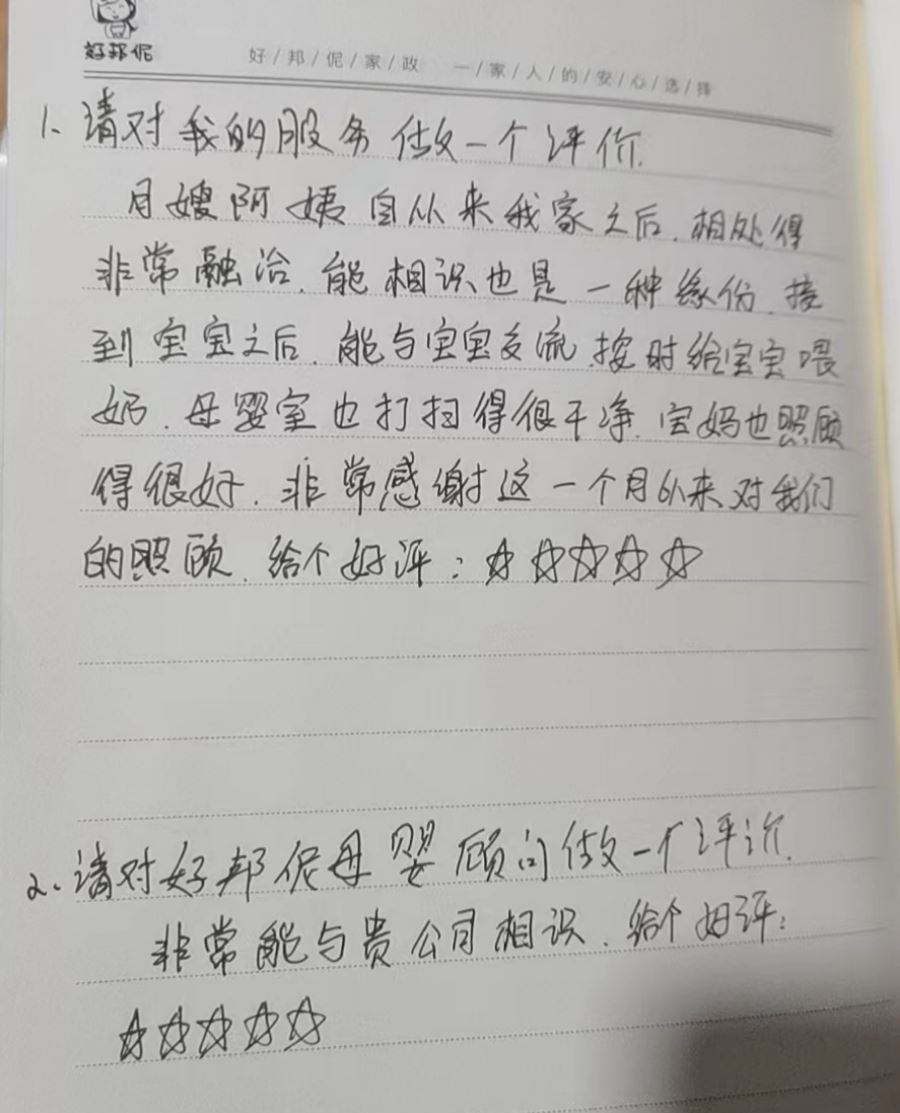 好邦伲
好/邦/伲/家/政 一/家/人/的/安/心/选/择
1、请对我的服务做一个评价.
月嫂阿姨自从来我家之后.相处得
非常融洽.能相识也是一种缘份.接
到宝宝之后.能与宝宝交流.按时给宝宝喂
奶.母婴室也打扫得很干净.宝妈也照顾
得很好.非常感谢这一个月以来对我们
的照顾.给个好评：☆☆☆☆☆
2、请对好邦伲母婴顾问做一个评价.
非常能与贵公司相识.给个好评：
☆☆☆☆☆